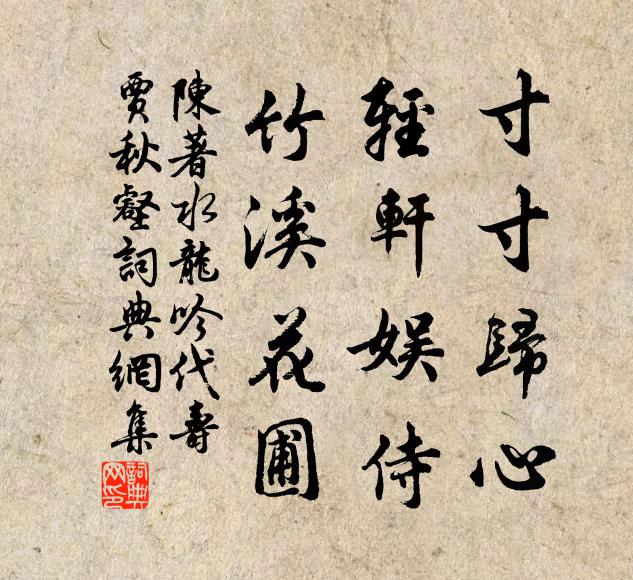 寸寸歸心
輕軒娛侍
竹溪花圃
陳著水龍吟代壽
賈秋壑詞典網集
詞典
网印